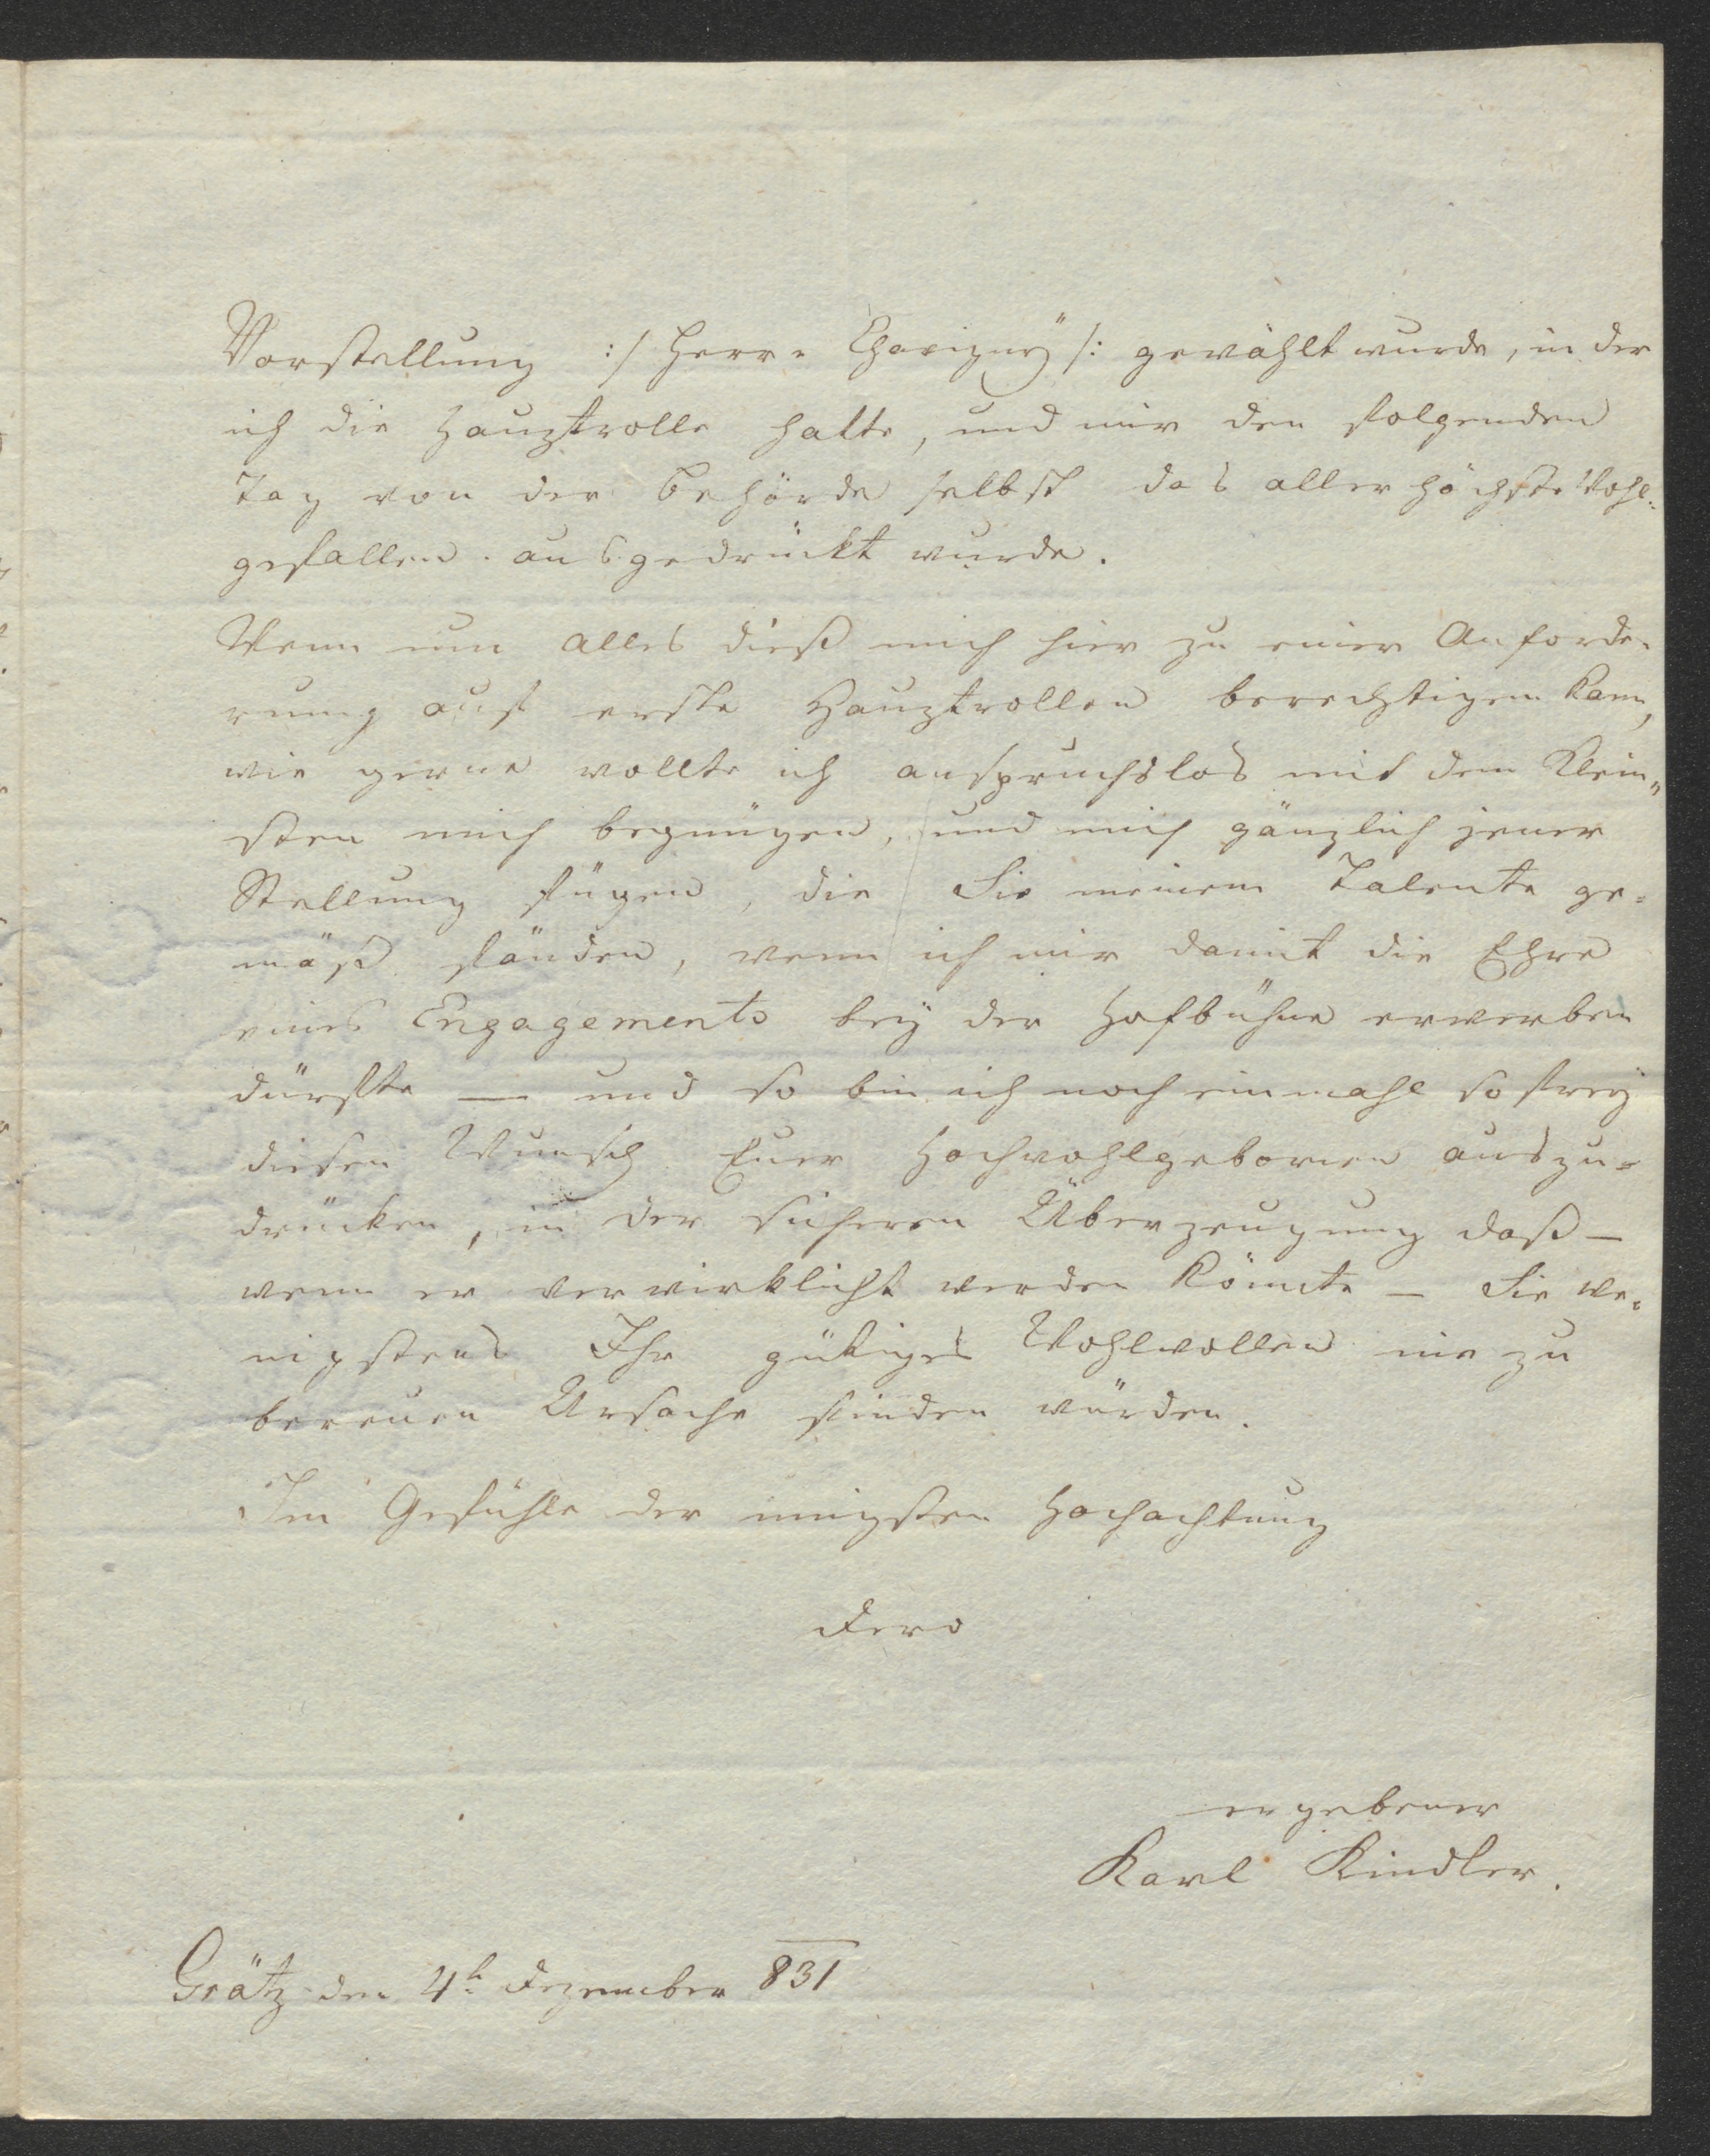 Vorstellung :/ Herr v Chavigny /: gewählt wurde, in der
ich die Hauptrolle hatte, und mir den folgenden
Tag von der Behörde selbst das allerhöchste Wohl-
gefallen ausgedrückt wurde.
Wenn nun alles dieß mich hier zu einer Anforde-
rung auf erste Hauptrollen berechtigen kann,
wie gerne wollte ich anspruchslos mit dem Klein-
sten mich begnügen, und mich gänzlich jener
Stellung fügen, die Sie meinem Talente ge-
mäß fänden, wenn ich mir damit die Ehre
eines Engagements bey der Hofbühne erwerben
dürfte — und so bin ich noch einmahl so frey
diesen Wunsch Euer Hochwohlgeboren auszu-
drücken, in der sicheren Überzeugung daß —
wenn er verwirklicht werden könnte — Sie we-
nigstens Ihr gütiges Wohlwollen nie zu
bereuen Ursache finden würden.
Im Gefühle der innigsten Hochachtung
Dero
ergebener
Karl Kindler.
Grätz den 4t Dezember 831